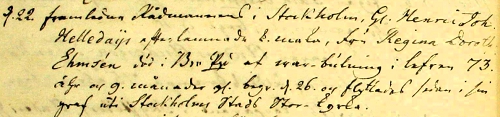 d. 22. framledne Rådmannens i Stockholm, Gl. Henric Joh.
Helledaÿs efterlemnade k. maka, Fru Regina Doroth.
Ehmsén död i af war-bulning i lefren 73.
åhr och 9. månader gl. begr. d. 26. och flÿttades sedan i sin
graf uti Stockholms Stads Stor-Kyrka.